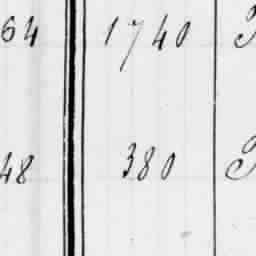 64 1740
48 380